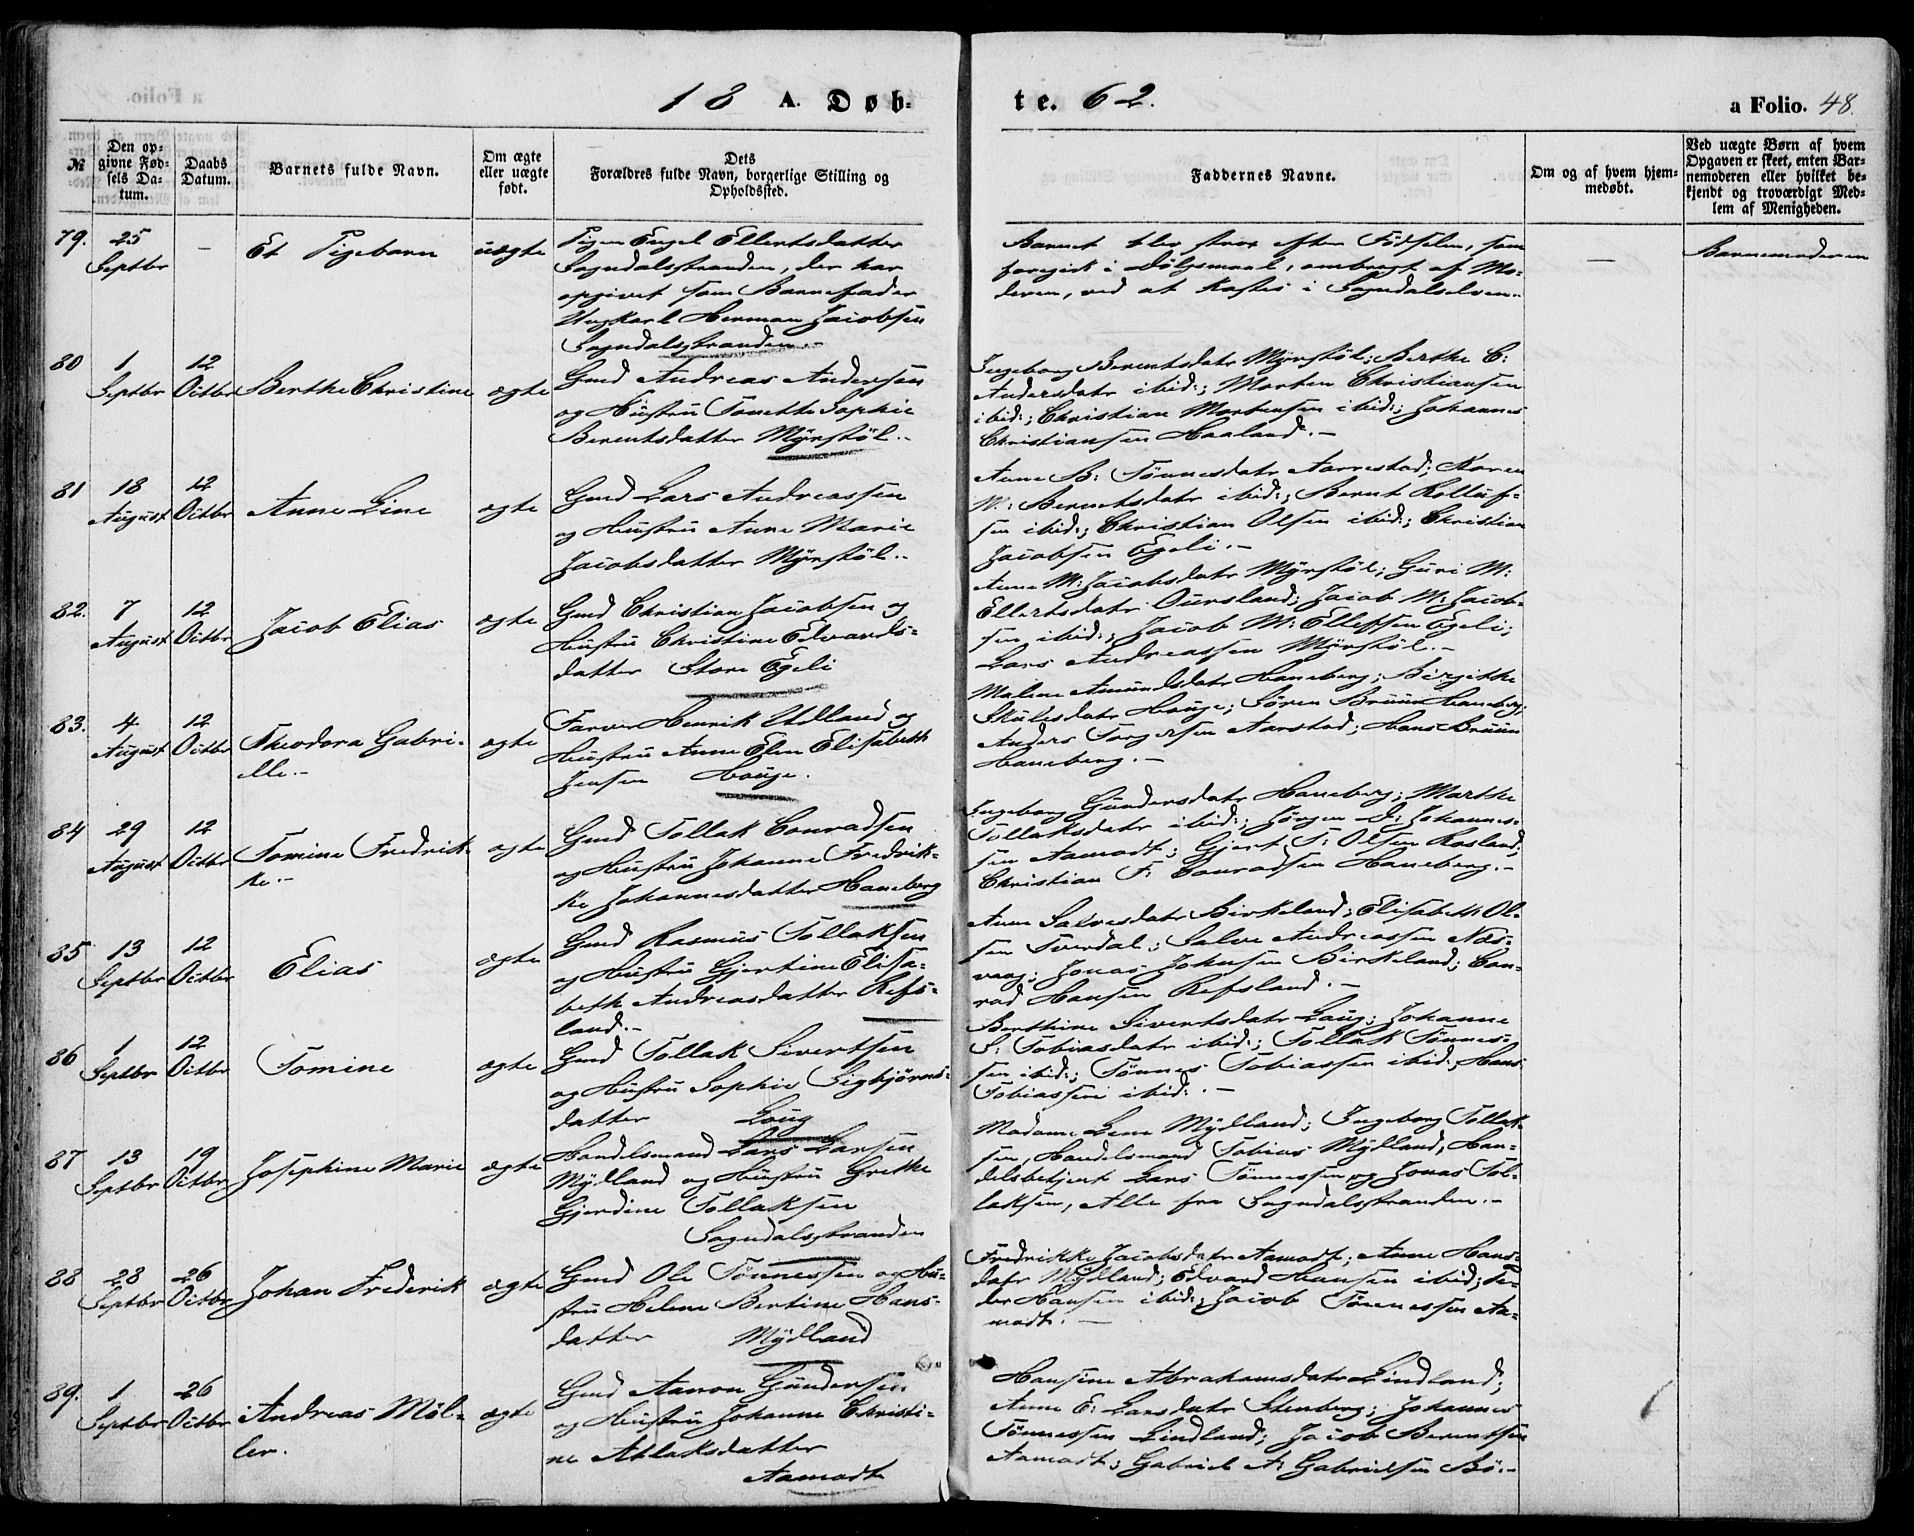 18 A. Døb-
te. 62.
a Folio. 48.
№
Den op-
givne Fød-
sels Da-
tum.
Daabs
Datum.
Barnets fulde Navn.
Om ægte
eller uægte
født.
Dets
Forældres fulde Navn, borgerlige Stilling og
Opholdssted.
Faddernes Navne.
Om og af hvem hjem-
medøbt.
Ved uægte Børn af hvem
Opgaven er skeet, enten Bar-
nemoderen eller hvilket be-
kjendt og troværdigt Med-
lem af Menigheden.
79.
25
Septbr
—
Et Pigebarn
uægte
Pigen Engel Ellertsdatter
Sogndalsstranden, der har
opgivet som Barnefader
Ungkarl Herman Jacobsen
Sogndalsstranden.-
Barnet blev strax efter Fødselen, som
foregik i Dølgsmaal, ombragt af Mo-
deren, ved at kastes i Sogndalselven.-
—
Barnemoderen
80
1
Septbr
12
Octbr
Berthe Christine
ægte
Gmd Andreas Andersen
og Hustru Tonette Sophie
Berentsdatter Myrstøl.-
Ingeborg Berentsdatr Myrstøl; Berthe C:
Andersdatr ibid:; Morten Christiansen
ibid:; Christian Mortensen ibid:; Johannes
Christiansen Haaland.-
81
18
August
12
Octbr
Anne Line
ægte
Gmd Lars Andreassen
og Hustru Anne Marie
Jacobsdatter Myrstøl.-
Anne B: Tønnesdatr Aarrestad; Karen
M: Berentsdatr ibid:; Bernt Rolluf-
sen ibid:; Christian Olsen ibid:; Christian
Jacobsen Egeli.-
82.
7
August
12
Octbr
Jacob Elias
ægte
Gmd Christian Jacobsen og
Hustru Christine Edvards-
datter Store Egeli
Anne M: Jacobsdatr Myrstøl; Guri M:
Ellertsdatr Oursland; Jacob M: Jacob-
sen ibid:; Jacob M: Ellefsen Egeli;
Lars Andreassen Myrstøl.-
83.
4
August
12
Octbr
Theodora Gabri-
elle.-
ægte
Farver Henrik Udland og
Hustru Anne Elen Elisabeth
Jensen Houge.
Malene Amundsdatr Haneberg; Birgitte
Skulesdatr Houge; Søren Bruun Haneberg;
Anders Torgersen Aarstad; Hans Bruun
Haneberg.-
84
29
August
12
Octbr
Tomine Fredrik-
ke.-
ægte
Gmd Tollak Conradsen
og Hustru Johanne Fredrik-
ke Johannesdatter Haneberg
Ingeborg Gundersdatr Haneberg; Marthe
Tollaksdatr ibid:; Jørgen D: Johannes-
sen Aamodt; Gjert T: Olsen Rosland;
Christian F: Conradsen Haneberg.-
85
13
Septbr
12
Octbr
Elias
ægte
Gmd Rasmus Tollaksen
og Hustru Gjertine Elisa-
beth Andreasdatter Refs-
land.-
Anne Salvesdatr Birkeland; Elisabeth Ol-
sen Tverdal; Salve Andreassen Næs-
vaag; Jonas Johnsen Birkeland; Con-
rad Hansen Refsland.-
86
1
Septbr
12
Octbr
Tomine
ægte
Gmd Tollak Sivertsen
og Hustru Sophie Sigbjørns-
datter Loug
Berthine Sivertsdatr Loug; Johanne
S: Tobiasdatr ibid:; Tollak Tønnes-
sen ibid:; Tønnes Tobiassen ibid:; Hans
Tobiassen ibid:.-
87
13
Septbr
19
Octbr
Josephine Marie
ægte
Handelsmand Lars Larsen
Mydland og Hustru Grethe
Gjerdine Tollaksen
Sogndalsstranden
Madame Lene Mydland; Ingeborg Tollak-
sen, Handelsmand Tobias Mydland, Han-
delsbetjent Lars Tønnessen og Jonas Tol-
laksen, Alle fra Sogndalsstranden.-
88
28
Septbr
26
Octbr
Johan Frederik
ægte
Gmd Ole Tønnessen og Hu-
stru Helene Bertine Hans-
datter Mydland
Fredrikke Jacobsdatr Aamodt; Anne Hans-
datr Mydland; Edvard Hansen ibid:; Pe-
der Hansen ibid:; Jacob Tønnessen Aa-
modt.-
89.
1
Septbr
26
Octbr
Andreas Møl-
ler.
ægte
Gmd Aanon Gundersen
og Hustru Johanne Christi-
ne Atlaksdatter
Aamodt
Hansine Abrahamsdatr Lindland;
Anne E: Larsdatr Stenberg; Johannes
Tønnessen Lindland; Jacob Berentsen
Aamodt; Gabriel A: Gabrielsen Bø.-